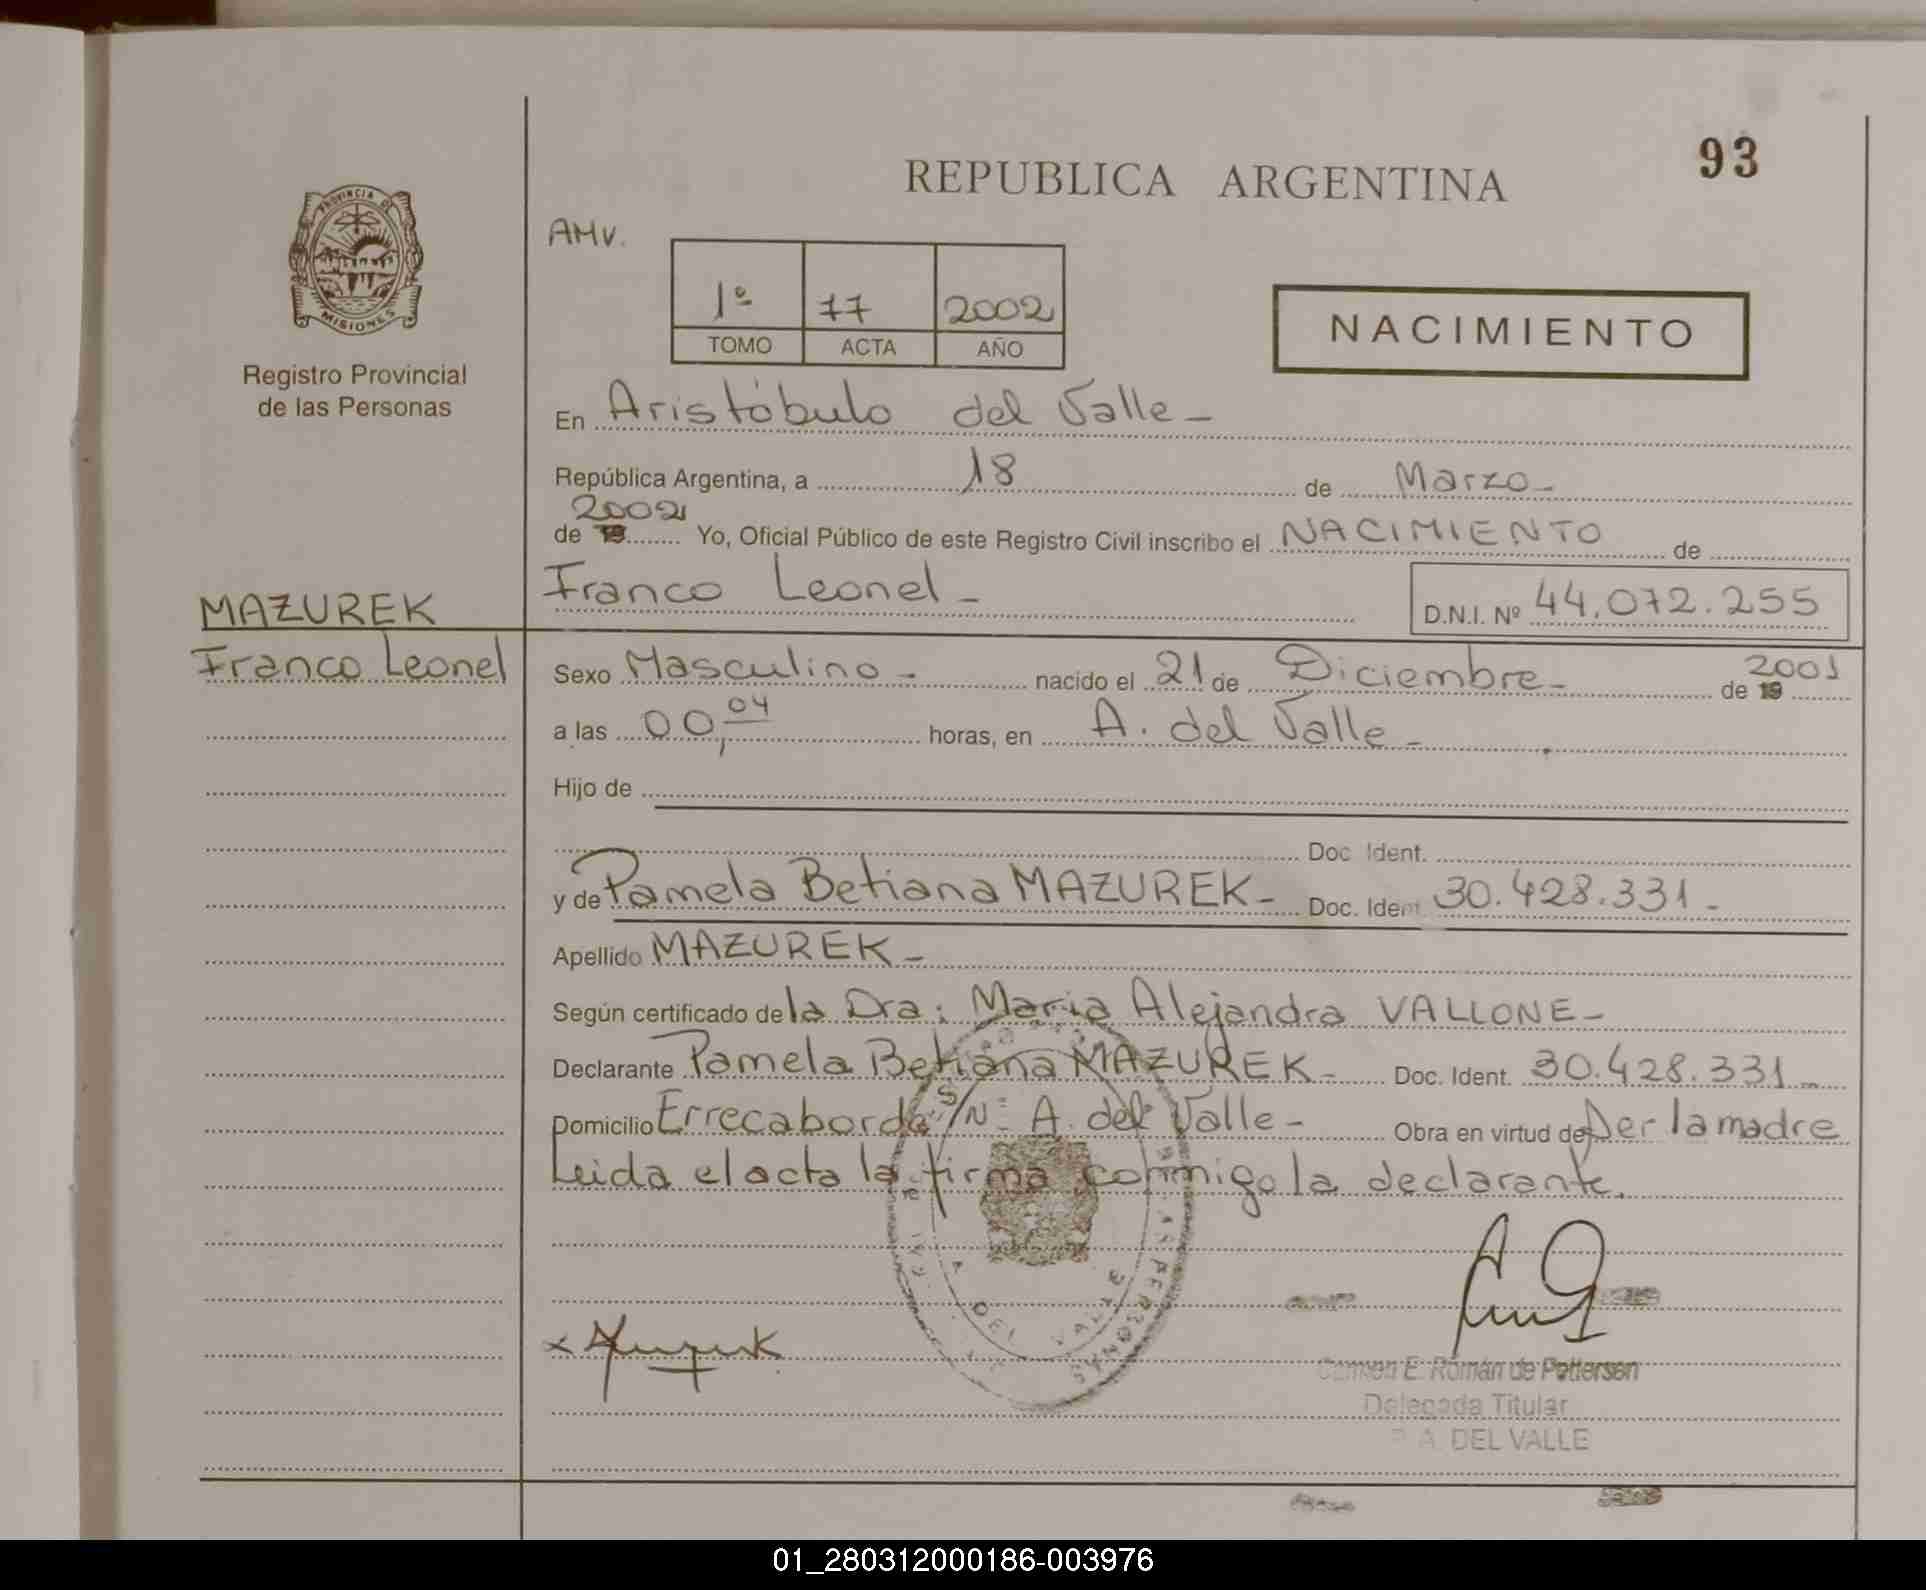 93
REPUBLICA ARGENTINA
PROVINCIA DE
MISIONES
Registro Provincial
de las Personas
AMV.
1º 77 2002
TOMO ACTA AÑO
NACIMIENTO
En Aristóbulo del Valle -
República Argentina, a 18 de Marzo -
2002
de 19 Yo, Oficial Público de este Registro Civil inscribo el NACIMIENTO de
Franco Leonel -
D.N.I. Nº 44.072.255
MAZUREK
Franco Leonel
Sexo Masculino - nacido el 21 de Diciembre - de 19 2001
a las 00,04 horas, en A. del Valle -
Hijo de
Doc. Ident.
y de Pamela Betiana MAZUREK - Doc. Ident. 30.428.331 -
Apellido MAZUREK -
Según certificado de la Dra: Maria Alejandra VALLONE -
Declarante Pamela Betiana MAZUREK - Doc. Ident. 30.428.331 -
Domicilio Errecaborde S/Nº A. del Valle - Obra en virtud de Ser la madre
Leida el acta la firma conmigo la declarante.
A. DEL VALLE
PERSONAS
Carmen E. Román de Pettersen
Delegada Titular
A. DEL VALLE
01_280312000186-003976